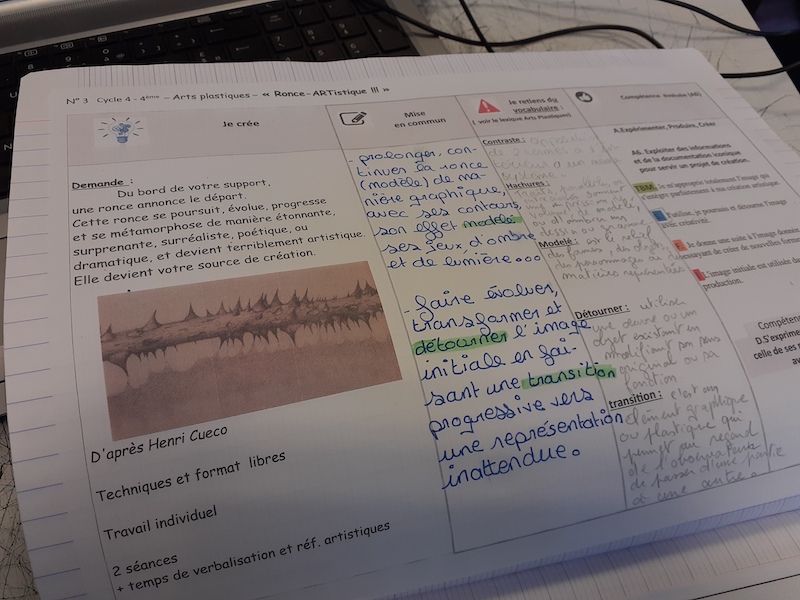 N° 3 Cycle 4 - 4ème – Arts plastiques – « Ronce-ARTistique !!! »
Je crée
Demande :
Du bord de votre support,
une ronce annonce le départ.
Cette ronce se poursuit, évolue, progresse
et se métamorphose de manière étonnante,
surprenante, surréaliste, poétique, ou
dramatique, et devient terriblement artistique.
Elle devient votre source de création.
D'après Henri Cueco
Techniques et format libres
Travail individuel
2 séances
+ temps de verbalisation et réf. artistiques
Mise
en commun
- prolonger, con-
tinuer la ronce
(modèle) de ma-
nière graphique,
avec ses contours,
son effet modelé
ses jeux d'ombre
et de lumière...
- faire évoluer,
transformer et
détourner l'image
initiale en fai-
sant une transition
progressive vers
une représentation
inattendue.
Je retiens du
vocabulaire :
( voir le lexique Arts Plastiques)
Contraste :
Hachures :
Modelé :
des formes, des objets,
des personnages ou des
matières représentées
Détourner : utiliser
une œuvre ou un
objet existant en
modifiant son sens
original ou sa
fonction
transition : c'est un
élément graphique
ou plastique qui
permet au regard
de l'observateur
de passer d'une partie
à une autre.
Compétence évaluée
A.Expérimenter, Produire, Créer
A6. Exploiter des informations
et de la documentation iconique
pour servir un projet de création.
TBM
approprie totalement l'image
intègre parfaitement à ma création artistique.
J'utilise, je poursuis et détourne l'image
avec créativité.
Je donne une suite à l'image
essayant de créer de nouvelles
L'image initiale est utilisée
production.
D.S'exprime
celle de ses